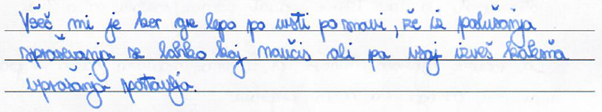 Všeč mi je ker gre lepo po vrsti po snovi, že iz poslušanja
spraševanja se lahko kaj naučiš ali pa vsaj izveš kakšna
vprašanja postavlja.